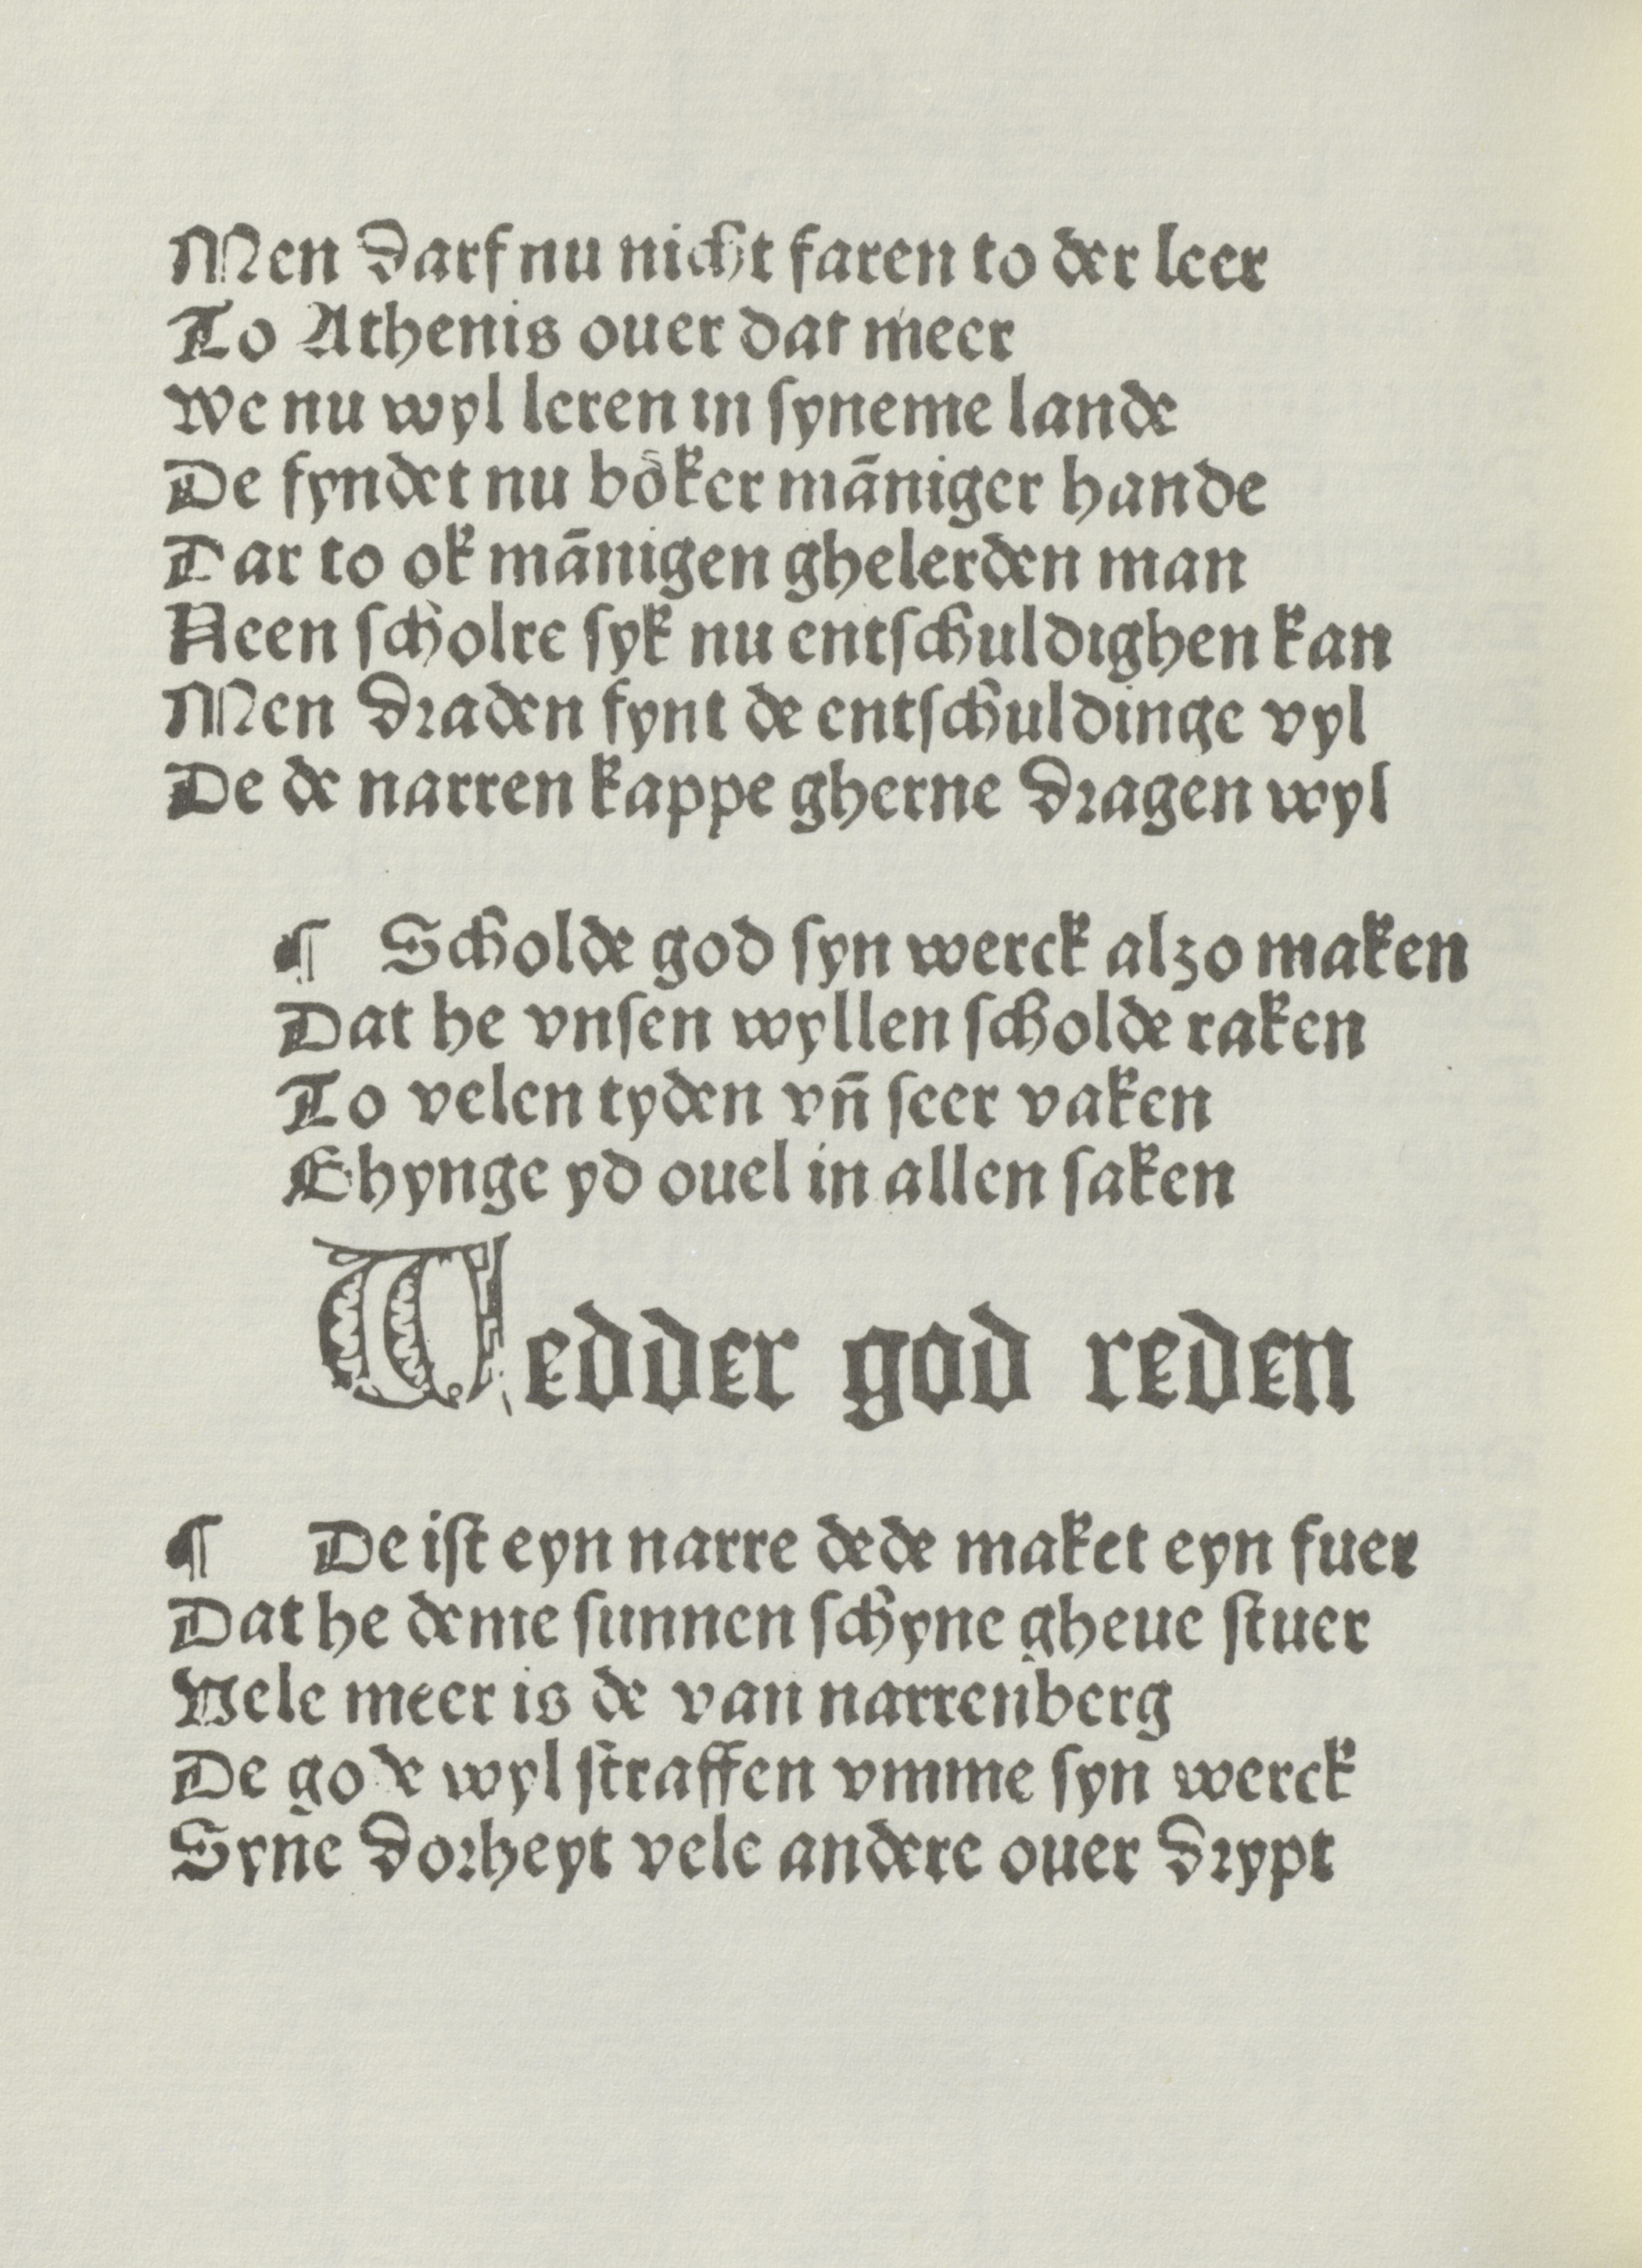 Men darf nu nicht faren to der leer
To Athenis ouer dat meer
We nu wyl leren in syneme lande
De fyndet nu boͤker māniger hande
Dar to ok mānigen ghelerden man
Neen scholre syk nu entschuldighen kan
Men draden fynt de entschuldinge vyl
De de narren kappe gherne dragen wyl
¶ Scholde god syn werck alzo maken
Dat he vnsen wyllen scholde raken
To velen tyden vn̄ seer vaken
Ghynge yd ouel in allen saken
Wedder god reden
¶ De ist eyn narre dede maket eyn fuer
Dat he deme sunnen schyne gheue stuer
Vele meer is de van narrenberg
De gode wyl straffen vmme syn werck
Syne dorheyt vele andere ouer drypt